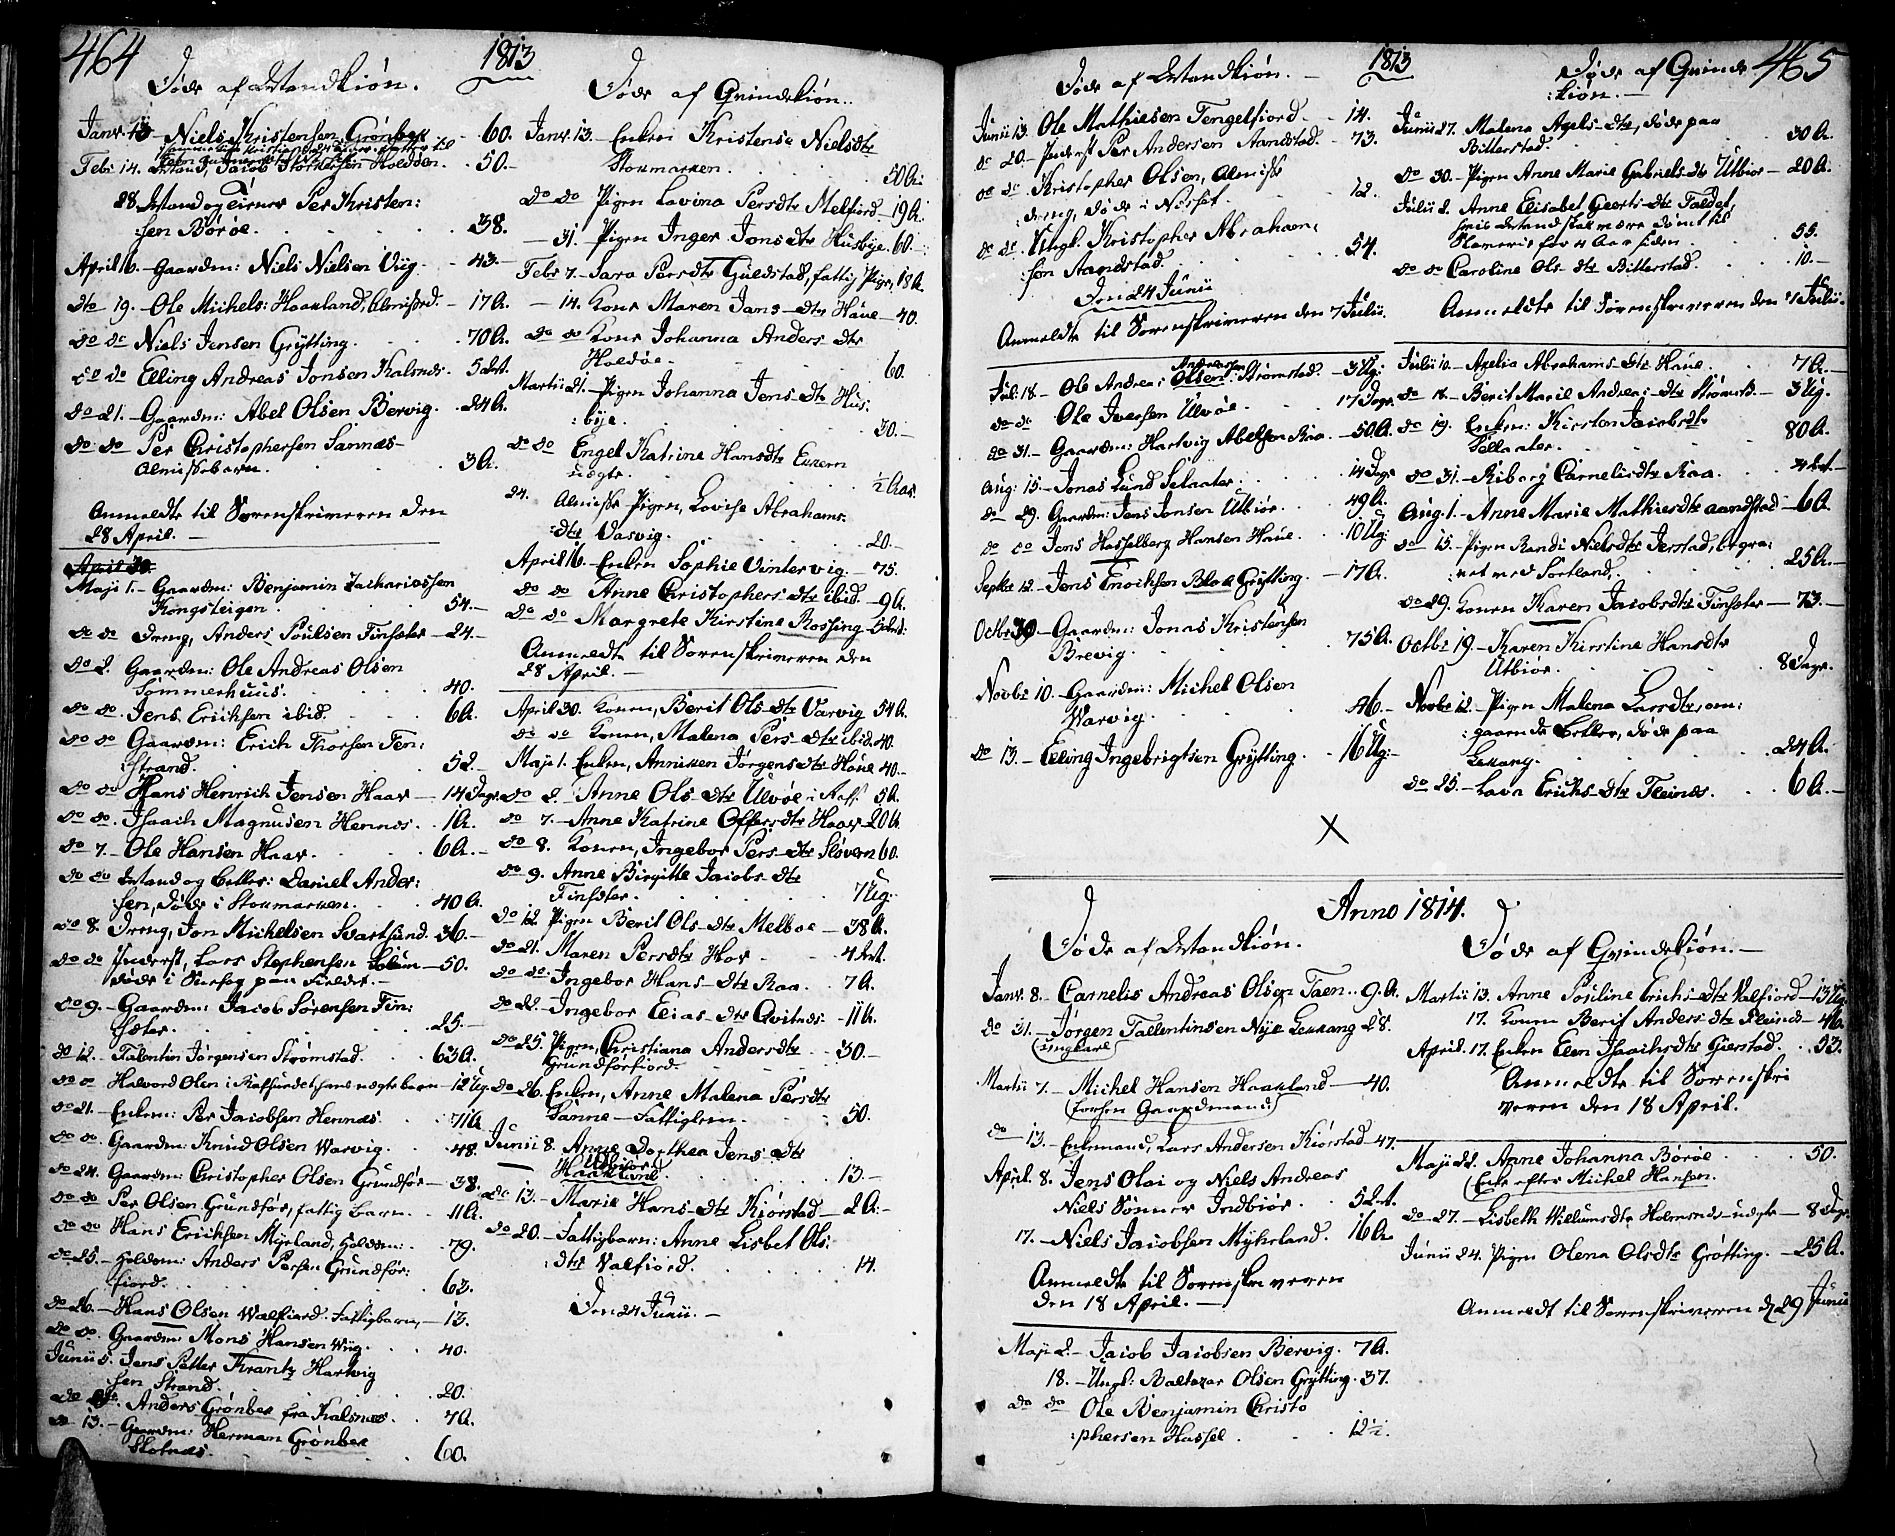 464
1813
Døde af Mandkiøn.
Janv. 13 – Niels Kristensen Grønbek – 60.
Febr 14. Jacob Holdøen. 50.–
28 Per Kristen:
sen Børøe. 38.
April 16. – Gaardm: Niels Nielsen Viig – 43.–
dto 19. – Ole Michels: Haakland, – 17 A.
do do Niels Jensen Grytting. 70 A.
do do Elling Andreas Jonsen Kalsnes. 5
do 21. – Gaardm: Abel Olsen Bervig. 24 A.
do do Per Christophersen Sannes –
Almissebarn. 3 A.
Anmeldte til Sorenskriveren den
28 April. –
Maji 1. – Gaardm: Benjamin Zachariassen
Kongsteigen. 54.–
do do Dreng, Anders Poulsen Finsæter – 24.–
do 2. Gaardm: Ole Andreas Olsen
Sommerhuus. 40.
do do. Jens Erichsen ibid. 6 A.
do do Gaardm: Erich Thorsen Ten:
strand. 52.–
do do Hans Henrich Jensen Haav – 14 Dage.
do do. Isaach Magnusen Hennes. 1 A.
do 7. – Ole Hansen Haav. 6 A.–
do do Daniel Ander:
sen, døde i Stokmarken. 40 A.
do 8. Dreng, Jon Michelsen Svartsund. 36.–
do do Inderst, Lars Stephensen – 50.
døde i paa Fieldet.
do 9. – Gaardm: Jacob Sørensen Fin:
sæter. 25.–
do 12. – Falentin Jørgensen Strømstad. 63 A.
do 21. – Enkem: Per Jacobsen Hennes. 71 A.
do do. Gaardm: Knud Olsen Warvig. 48.
do 24. Gaardm: Christopher Olsen Grundfør – 38.
do do Per Olsen Grundfør, fattig barn. 11 A.
do do Hans Erichsen Myrland, 79.
do 25. – Anders Persen Grundfør:
fiord. 62.
do 26. – Hans Olsen Walfiord. Fattigbarn, – 13.
do do. Gaardm: Mons Hansen Wiig. 40.
Junii 5. Jens Petter Krantz Hartvig
sen Strand. 20.
do do. Anders Grønbek fra Kalsnes. 7 A.
do 13. – Gaardm: Herman Grønbek
Skotnes. 60.
Døde af Qvindekiøn.
Janv. 13. – Enken Kristense Nielsdtr
Stokmarken. 50 A.
do do Pigen Lavina Persdtr Melfiord – 19 A.
– 31. – Pigen Inger Jonsdtr Husbye. 60.
Febr 7. – Sara Persdtr Guldstad, fattig Pige, 18 A.
– 14. Kone Maren Jans-dtr Haue – 40.
do do Kone Johanna Anders dtr
Holdøe. 60.
Martii 21. – Pigen Johanna Jens-dtr Hus:
bye. 30.–
do do Engel Katrine Hansdtr
uægte. ½ Aar.
24. Almisse Pigen, Lovise Abrahams:
dtr Dasvig. 20.–
April 16. – Enken Sophie Vintervig. – 75.
do do Anne Christophers-dtr ibid. – 9 A.
do do Margrete Kirstine Rossing –
Anmeldte til Sorenskriveren den
28 April. –
April 30. Konen, Berit Ols-dtr Varvig 54 A.
do do Konen, Malena Pers-dtr ibid. 40.
Maji 1. Enken, Anniken Jørgensdtr Haue 40.–
do 2. Anne Ols-dtr Ulvøe 5 A.
do 7. – Anne Katrine Offersdtr Haav – 20 A.
do 8. Konen, Ingebor Pers-dtr Sløveren 60.
do 9. Anne Birgitte Jacobs-dtr
Finsæter. 7 Ug:
do 12 Pigen Berit Ols-dtr Melboe – 38 A.
do 21. Maren Persdtr Hov – 4
do do. Ingebor Hans-dtr Raa. 7 A.
do 22. – Ingebor Elias-dtr Qvitnes. – 11 A.
do 25. Pigen, Christiana Andersdtr
Grundførfiord. 30.–
do 26. Enken, Anne Malena Persdtr
Sanne – Fattiglem. 50.
Junii 8. Anne Dorthea Jens-dtr
Utbiør
Haakland. 13.–
do 13. – Marie Hans-dtr Kiørstad – 2 A.–
do 20. – Fattigbarn: Anne Lisbet Ols:
dtr Valfiord. 14.
Den 24 Junii. –
465
1813
Døde af Mandkiøn. –
Junii 13. Ole Mathiesen Tengelfiord. 14.
do 20. – Inderst Per Andersen Aandstad. 73.
do do Kristopher Olsen, Almisse
dreng, døde i 12.
do do. Ungk. Kristopher Abraham:
son Aandstad. 54.
Den 24 Junii
Anmeldte til Sorenskriveren den 7 Julii.
Jul: 18 – Ole Andreas Andreasen Olsen Strømstad. – 3 Ug:
do do Ole Iversen Ulvøe. 17 Dage.
do 31. – Gaardm: Hartvig Abelsen Raa. – 50 A.
Aug: 15. – Jonas Lund Selaater. 14 Dage
do – 29. Gaardm: Jens Jonsen Utbiør. 49 A.
do do Jens Hasselberg Hansen Haue. 10 Ug:
Septbr 12. – Jens Enochsen Grytting. – 17 A.
Octbr – Gaardm: Jonas Kristensen
Brevig. 75 A.
Novbr 10. – Gaardm: Michel Olsen
Warvig. 46.–
do 13. – Elling Ingebrigtsen Grytting. 16 Ug:
Døde af Qvinde
kiøn. –
Junii 27. Malena Axels-dtr, døde paa
Bitterstad. 30 A.
do 30. – Pigen Anne Marie Gabriels-dtr Utbiør – 20 A.
Julii 2. Anne Elisabet Geerts-dtr Faldet,
hvis Mand skal være dømt til
Slaverie for 4 Aar siden. 55.
do do Caroline Ols-dtr Bitterstad. 10.–
Anmeldte til Sorenskriveren den 7 Julii.
Julii 10. – Axelia Abrahams-dtr Haue. 7 A.–
do 18. – Berit Marie Andreas-dtr Strømst. – 3 Ug.
do 19. Enken: Kirsten Jacobsdtr
Sellaater. 80 A.
do 31. – Kiborg Cornelisdtr Raa. 4
Aug. 1. – Anne Marie Mathiesdtr Aandstad – 6 A.
do 15. – Pigen Randi Nielsdtr Jerstad, begra:
vet ved Sortland. 25 A.–
do 29. Konen Karen Jacobsdtr Finsæter – 73.–
Octbr 19. – Karen Kirstine Hansdtr
Utbiør. 8 Dage.
Novbr 12. – Pigen Malena Larsdtr, om:
gaaende Betler, døde paa
Lekang. 24 A.–
do 25. – Lava Erichs-dtr Fleines. 6 A.–
X
Anno 1814.
Døde af Mandkiøn.
Janv. 8. – Cornelis Andreas Olsen Taen. 9. A.
do 31. – Jørgen Fallentinsen Nye Lekang 28.
(Ungkarl
Martii 7. – Michel Hansen Haakland – 40.
(forhen Gaardmand)
do – 13. – Enkemand, Lars Andersen Kiørstad – 47.
April. 8. Jens Olai og Niels Andreas
Niels Sønner Indbiør. 5
17. – Niels Jacobsen Myhrland. 16 A.
Anmeldte til Sorenskriveren
den 18 April. –
Maji 2. – Jacob Jacobsen Bervig. 7 A.
18. – Ungk: Baltazar Olsen Grytting. 37.
do do Ole Benjamin Christo
phersen Hassel. 12½.
Døde af Qvindekiøn. –
Martii 13. Anne Pesiline Erichs-dtr Valfiord – 13 Ug.
17. Konen Berit Anders-dtr Fleines – 46.
April. 17. Enken Elen Isaachsdtr Gierstad. 53.
Anmeldte til Sorenskri
veren den 18 April.
Maji 22. Anne Johanna Børøe. 50.
(Enke efter Michel Hansen.
do – 27. – Lisbeth Willumsdtr Holmsnes – uægte – 8 Dage.
Junii 24. Pigen Olena Olsdtr Grøtting. – 25 A.
Anmeldt til Sorenskriveren d 29 Junii